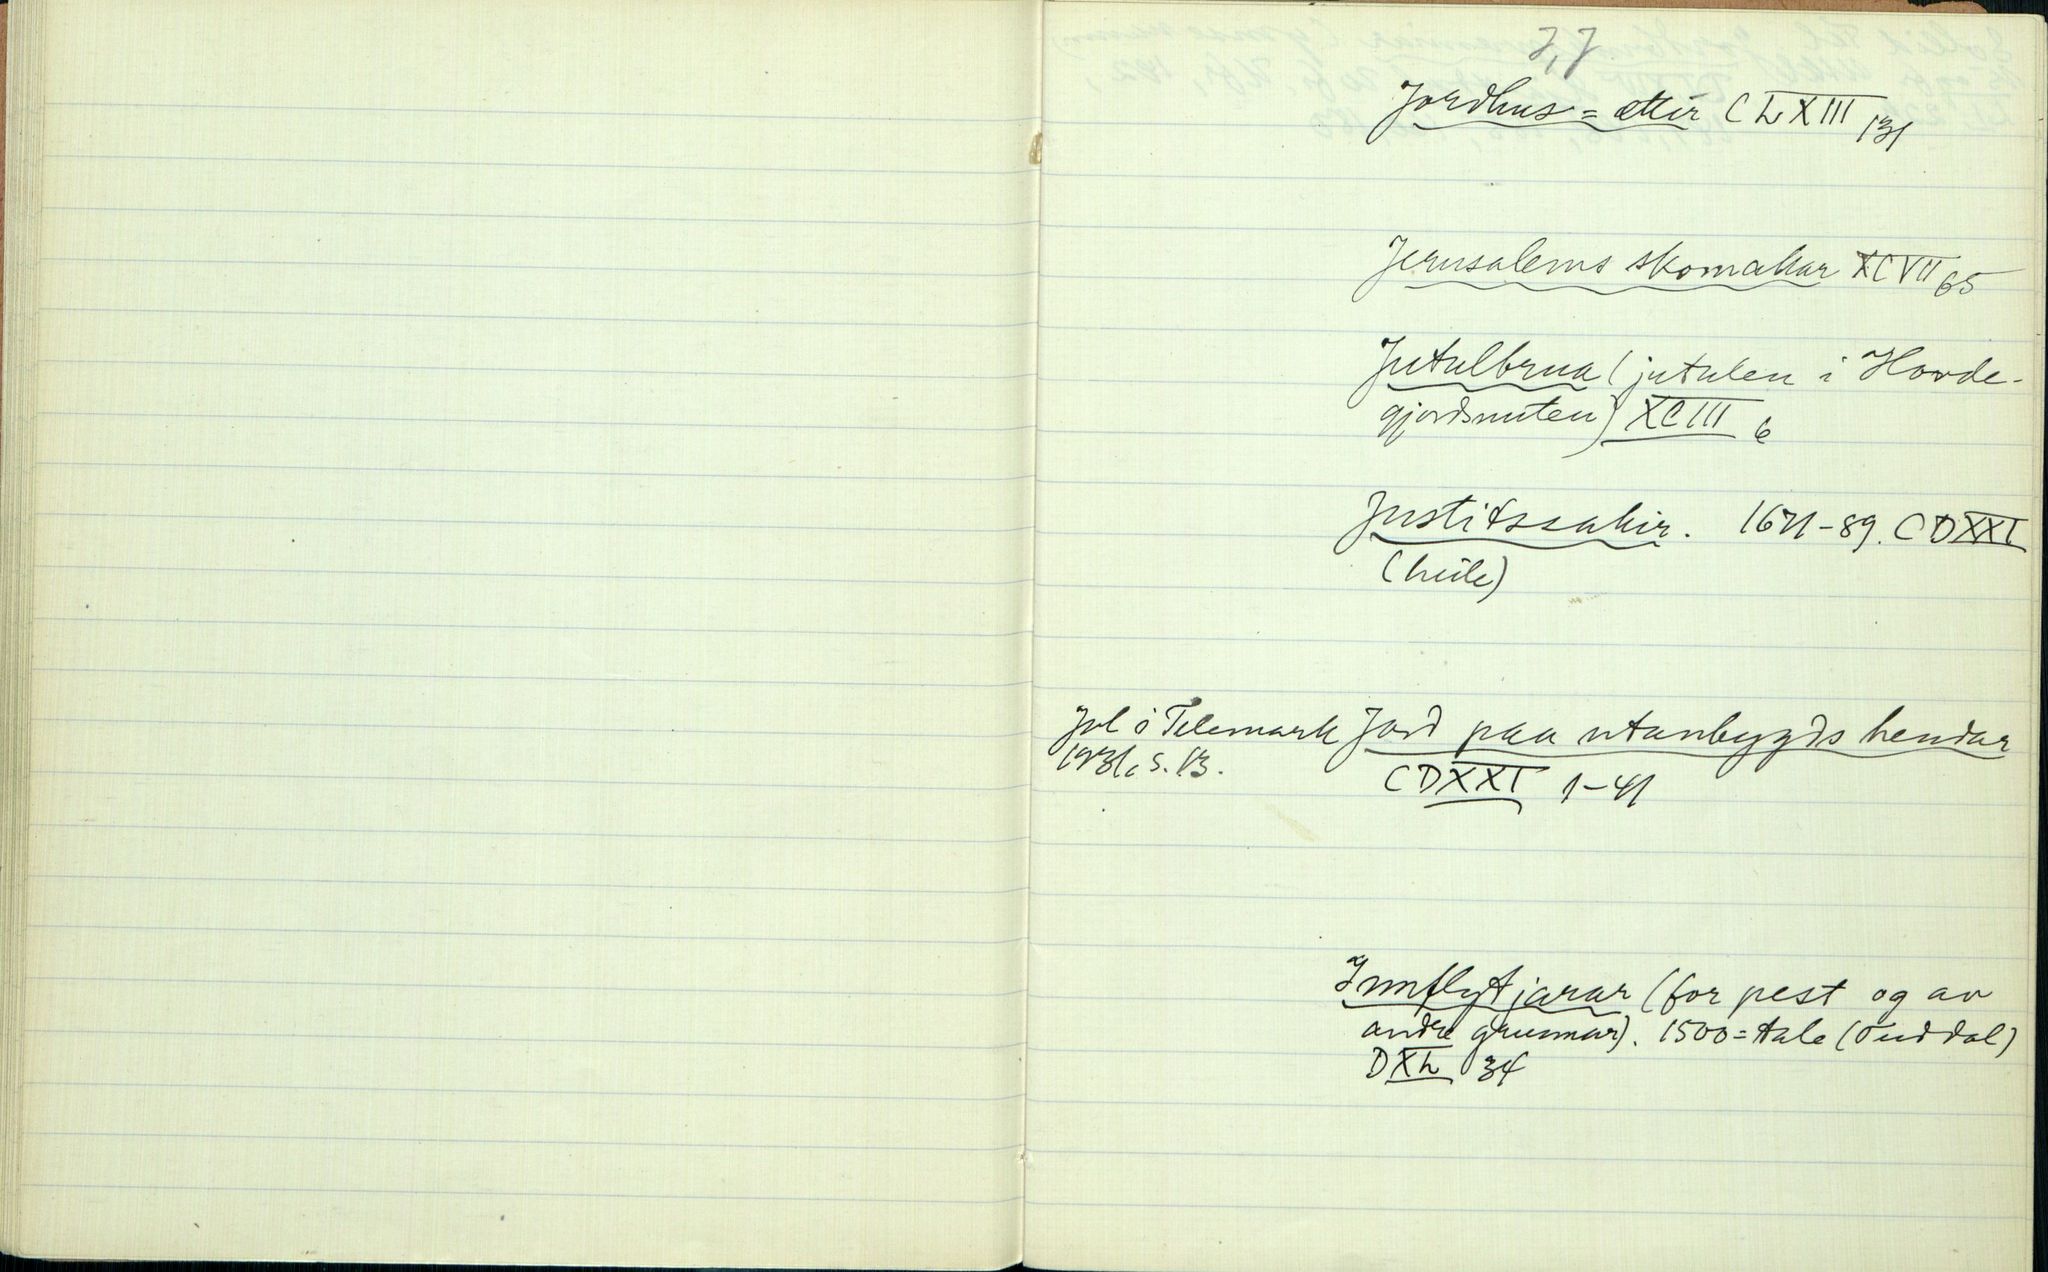 I, J
Jordhus = ættir CLXIII 131
Jerusalems skomakar XCVII 65
Jutulbrua (jutulen i Hovde-
gjordsnuten) XCIII 6
Justitssakir. 1671-89. CDXXI
(heile)
Jol i Telemark
1931, s. 13.
Jord paa utanbygds hendar
CDXXI 1-41
Innflytjarar (for pest og av
andre grunnar). 1500=tale (Tuddal)
DXL 34